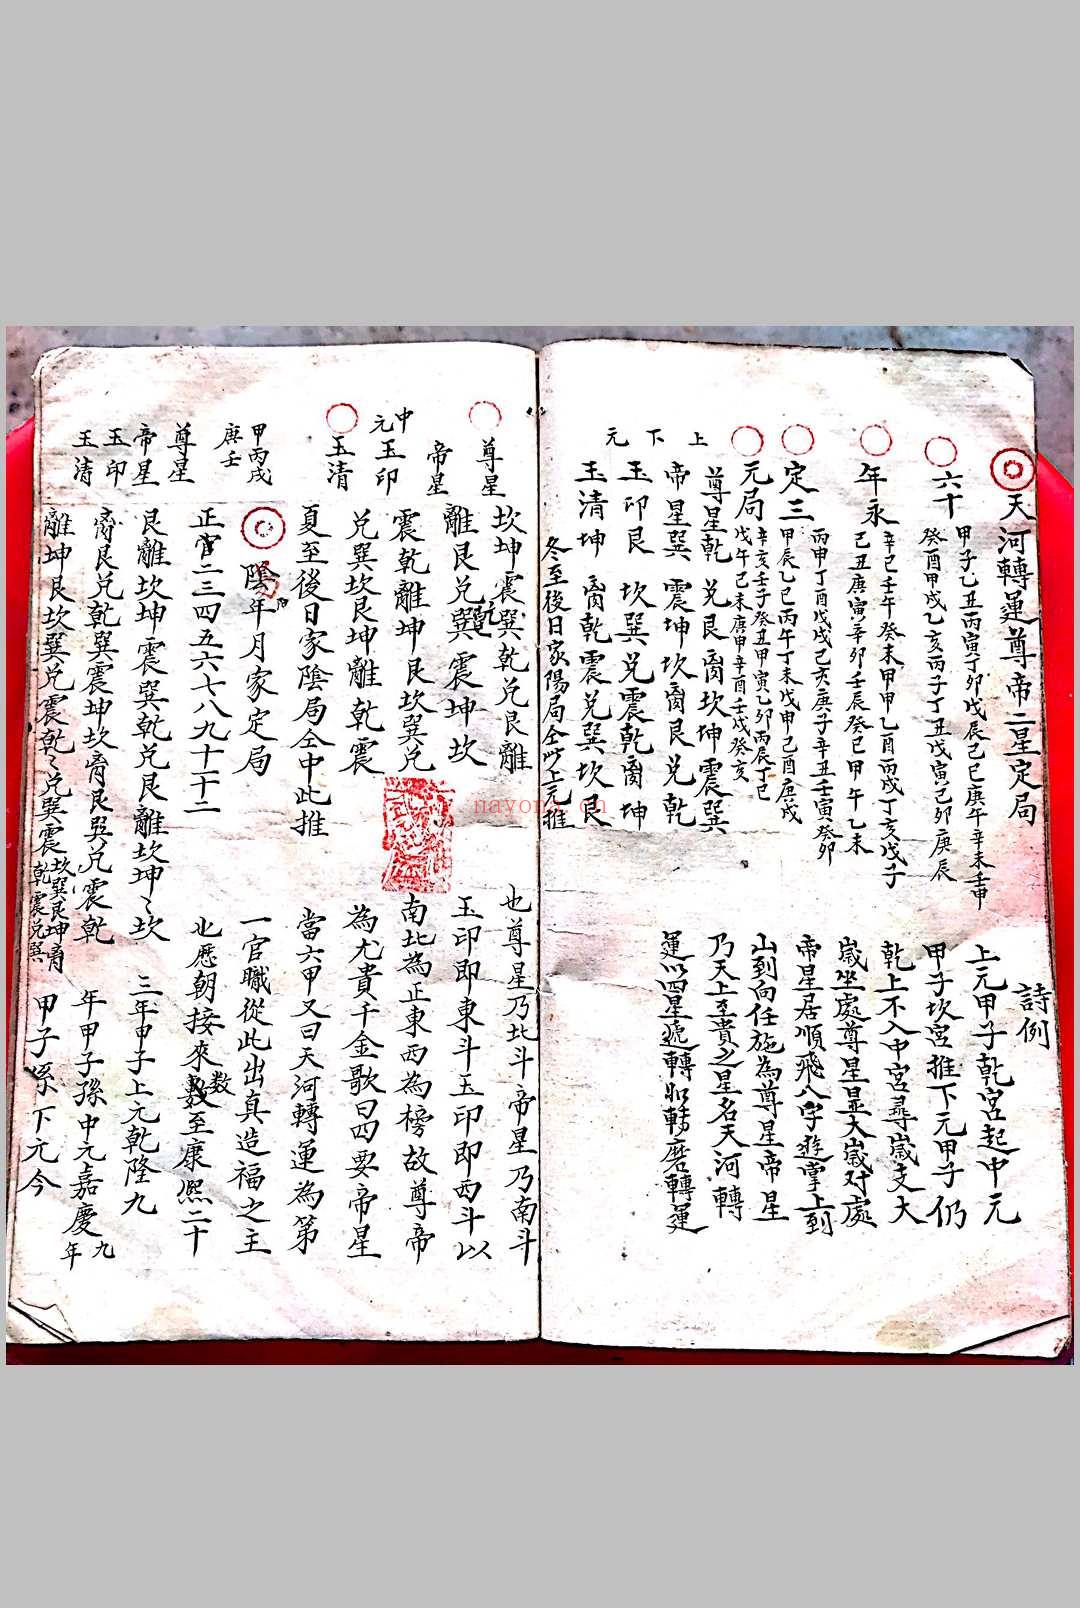 天河轉運尊帝二星定局
六十
甲子乙丑丙寅丁卯戊辰己巳庚午辛未壬申
癸酉甲戌乙亥丙子丁丑戊寅己卯庚辰
年永
辛巳壬午癸未甲甲乙酉丙戌丁亥戊子
己丑庚寅辛卯壬辰癸巳甲午乙未
定三
丙申丁酉戊戌己亥庚子辛丑壬寅癸卯
甲辰乙巳丙午丁未戊申己酉庚戌
元局
辛亥壬子癸丑甲寅乙卯丙辰丁巳
戊午己未庚申辛酉壬戌癸亥
上
尊星乾 兌艮离坎坤震巽
帝星巽 震坤坎离艮兌乾
下
玉印艮 坎巽兌震乾离坤
元
玉清坤 离乾震兌巽坎艮
冬至後日家陽局仝此上元推
詩例
上元甲子乾宮起中元
甲子坎宮推下元甲子仍
乾上不入中宮尋歲支大
歲坐處尊星是大歲对處
帝星居順飛八字遊掌上到
山到向任施為尊星帝星
乃天上至貴之星名天河轉
運以四星遞轉如轉磨轉運
尊星 坎坤震巽乾兌艮離
帝星 離艮兌乾巽震坤坎
中元
玉印 震乾離坤艮坎巽兌
玉清 兌巽坎艮坤離乾震
夏至後日家陰局仝中此推
陰年月家定局
甲丙戌
庚壬
正官二三四五六七八九十十二
尊星
艮離坎坤震巽乾兌艮離坎坤〻坎
帝星
离艮兌乾巽震坤坎离艮巽兌震乾
玉印
玉清
離坤艮坎巽兌震乾〻兌巽震
坎巽艮坤离
乾震兌巽
也尊星乃北斗帝星乃南斗
玉印即東斗玉印即西斗以
南北為正東西為榜故尊帝
為尤貴千金歌曰四要帝星
當六甲又曰天河轉運為第
一官職從此出真造福之主
北歷朝接來数至康熙二十
三年甲子上元乾隆九
年甲子孫中元嘉慶九年
甲子系下元今
navona.cn